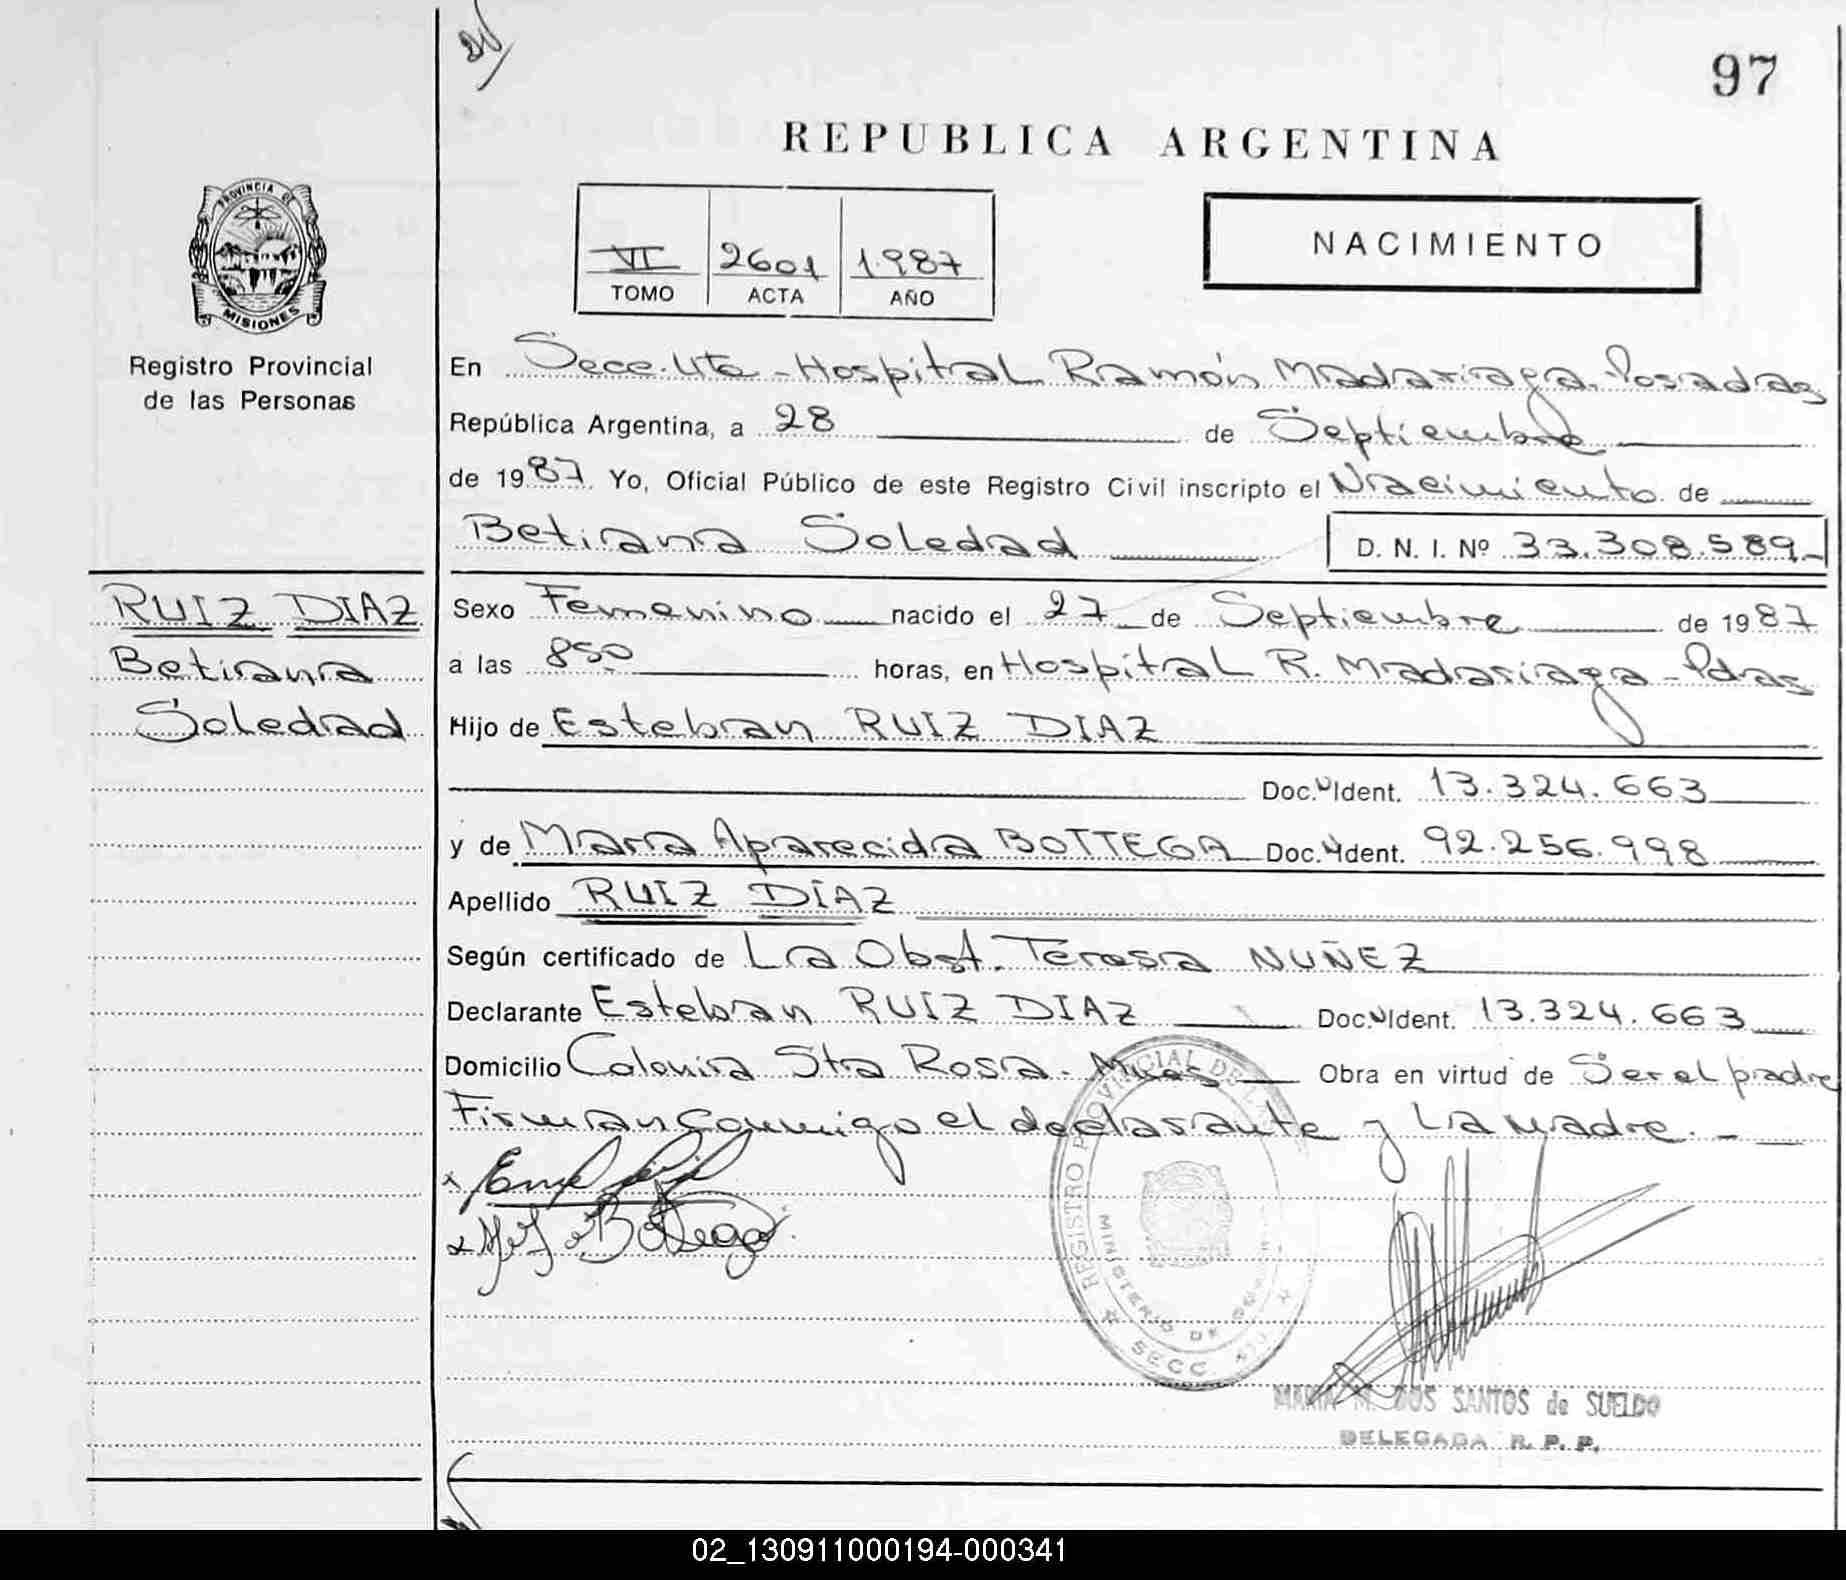 97
REPUBLICA ARGENTINA
PROVINCIA DE
MISIONES
Registro Provincial
de las Personas
VI 2601 1987
TOMO ACTA AÑO
NACIMIENTO
En Secc. 4ta - Hospital Ramón Madariaga. Posadas
República Argentina, a 28 de Septiembre
de 1987. Yo, Oficial Público de este Registro Civil inscripto el Nacimiento de
Betiana Soledad D. N. I. Nº 33.308.589.-
RUIZ DIAZ
Betiana
Soledad
Sexo Femenino nacido el 27 de Septiembre de 1987
a las 850 horas, en Hospital R. Madariaga - Pdas
Hijo de Esteban RUIZ DIAZ
Doc. Ident. 13.324.663
y de María Aparecida BOTTEGA Doc. Ident. 92.256.998
Apellido RUIZ DÍAZ
Según certificado de La Obst. Teresa NUÑEZ
Declarante Esteban RUIZ DIAZ Doc. Ident. 13.324.663
Domicilio Colonia Sta Rosa. Mnes Obra en virtud de Ser el padre
Firman conmigo el declarante y La madre. -
Bottega
REGISTRO PROVINCIAL DE LAS
MINISTERIO DE
SECC.
MARIA M. DOS SANTOS de SUELDO
DELEGADA R. P. P.
02_130911000194-000341